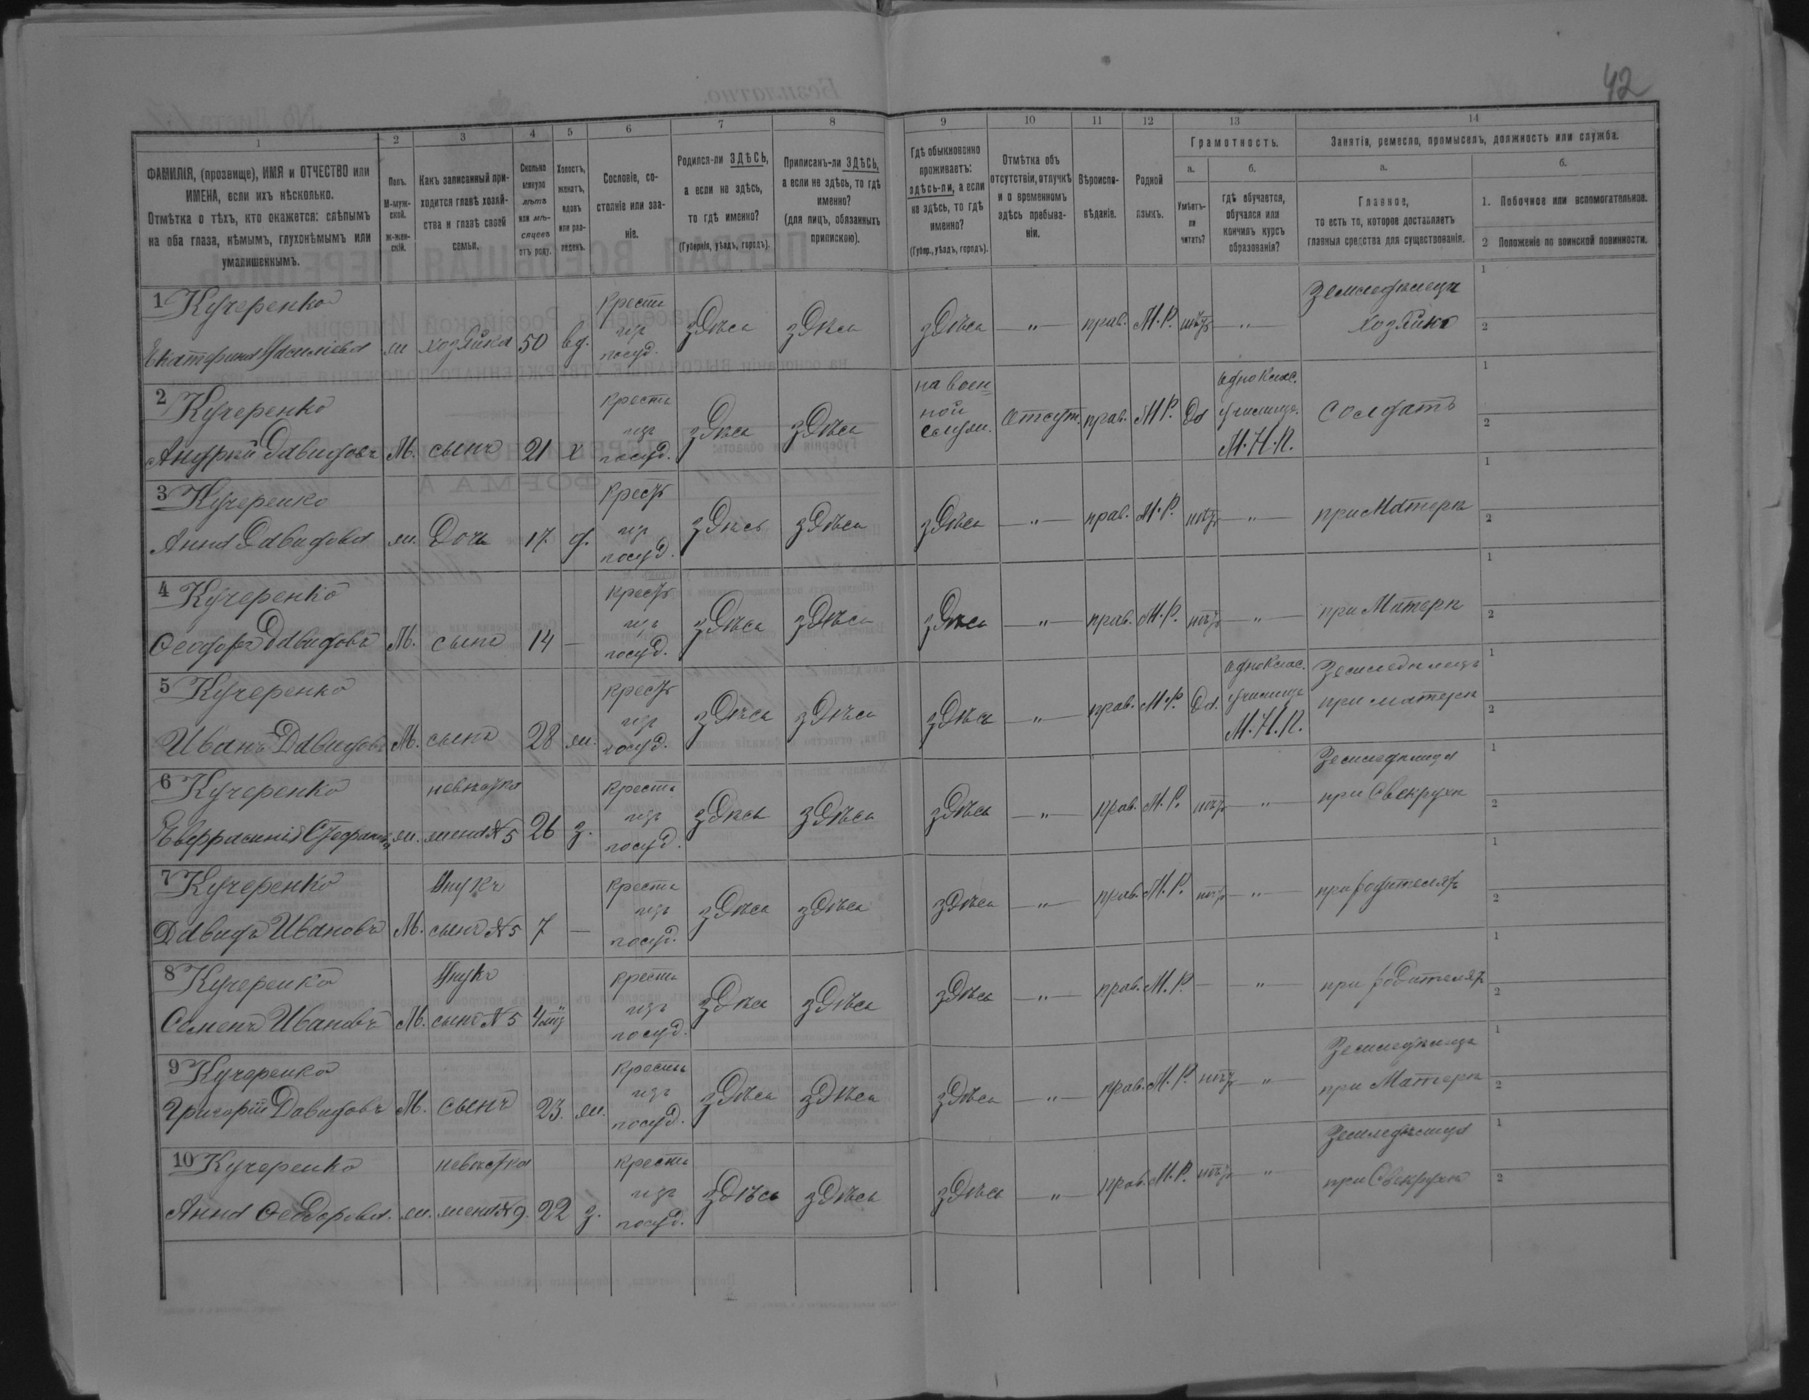 42
1 2 3 4 5 6 7 8 9 10 11 12 13 14
ФАМИЛІЯ, (прозвище), ИМЯ и ОТЧЕСТВО или
ИМЕНА, если ихъ нѣсколько.
Отмѣтка о тѣхъ, кто окажется: слѣпымъ
на оба глаза, нѣмымъ, глухонѣмымъ или
умалишеннымъ.
Полъ.
М-муж-
ской.
ж-жен-
скій.
Какъ записанный при-
ходится главѣ хозяй-
ства и главѣ своей
семьи.
Сколько
минуло
лѣтъ
или мѣ-
сяцевъ
отъ роду.
Холостъ,
женатъ,
вдовъ
или раз-
веденъ.
Сословіе, со-
стояніе или зва-
ніе.
Родился-ли ЗДѢСЬ,
а если не здѣсь,
то гдѣ именно?
(Губернія, уѣздъ, городъ).
Приписанъ-ли ЗДѢСЬ,
а если не здѣсь, то гдѣ
именно?
(для лицъ, обязанныхъ
припискою).
Гдѣ обыкновенно
проживаетъ:
здѣсь-ли, а если
не здѣсь, то гдѣ
именно?
(Губер., уѣздъ, городъ).
Отмѣтка объ
отсутствіи, отлучкѣ
и о временномъ
здѣсь пребыва-
ніи.
Вѣроиспо-
вѣданіе.
Родной
языкъ.
Грамотность.
а.
Умѣетъ-
ли
читать?
б.
гдѣ обучается,
обучался или
кончилъ курсъ
образованія?
Занятія, ремесло, промыселъ, должность или служба.
а.
Главное,
то есть то, которое доставляетъ
главныя средства для существованія.
б.
1. Побочное или вспомогательное.
2 Положеніе по воинской повинности.
1 Кучеренко Кресть Земледѣлецъ 1
Екатерина Василіева ж хозяйка 50 вд. изъ здѣсь здѣсь здѣсь — " — прав. М.Р. нѣтъ — " — хозяйка 2
посуд.
2 Кучеренко Кресть на воен= однокласс. 1
Андрей Давидовъ М. сынъ 21 х изъ здѣсь здѣсь ной Отсут. прав. М.Р. Да училище Солдатъ 2
посуд. службѣ. М.Н.П.
3 Кучеренко Крестъ 1
Анна Давидова ж. Дочь 17. д. изъ здѣсь здѣсь здѣсь — " — прав. М.Р. нѣтъ — " — при Матери 2
посуд.
4 Кучеренко Крестъ 1
Ѳеодоръ Давидовъ М. сынъ 14 — изъ здѣсь здѣсь здѣсь — " — прав. М.Р. нѣтъ — " — при Матери 2
посуд.
5 Кучеренко Крестъ однокласс. Земледѣлецъ 1
Иванъ Давидовъ М. сынъ 28 ж. изъ здѣсь здѣсь здѣсь — " — прав. М.Р. Да. училище при матери 2
посуд. М.Н.П.
6 Кучеренко невѣстка Крестъ Земледѣлица 1
ж. жена №5 26 з. изъ здѣсь здѣсь здѣсь — " — прав. М.Р. нѣтъ " при Свекрухи 2
посуд.
7 Кучеренко Внукъ Крестъ 1
Давидъ Ивановъ М. сынъ №5 7 — изъ здѣсь здѣсь здѣсь — " — прав. М.Р. нѣтъ — " — при родителяхъ 2
посуд.
8 Кучеренко Внукъ Крестъ 1
Семенъ Ивановъ М. сынъ №5 изъ здѣсь здѣсь здѣсь — " — прав. М.Р. — " при родителяхъ 2
посуд.
9 Кучеренко Крестьн Земледѣлецъ 1
Григорій Давидовъ М. сынъ 23. ж. изъ здѣсь здѣсь здѣсь — " — прав. М.Р. нѣтъ — " при Матери 2
посуд.
10 Кучеренко невѣстка Крестъ Земледѣлица 1
Анна Ѳеодорова. ж. жена №9. 22 з. изъ здѣсь здѣсь здѣсь " прав. М.Р. нѣтъ " при Свекрухи 2
посуд.